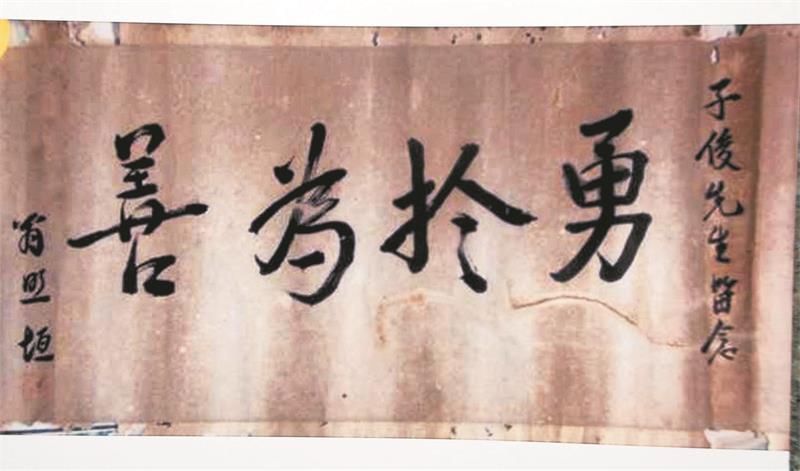 子俊先生留念
勇於为善
翁照垣